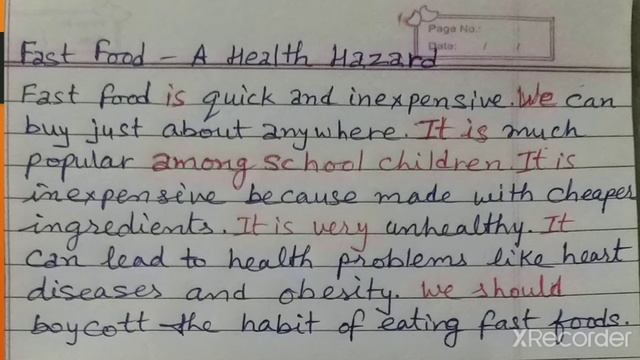 Page No.:
Date: / /
Fast Food - A Health Hazard
Fast food is quick and inexpensive. We can
buy just about anywhere. It is much
popular among school children It is
inexpensive because made with cheaper
ingredients. It is very unhealthy. It
can lead to health problems like heart
diseases and obesity. We should
boycott the habit of eating fast foods.
XRecorder